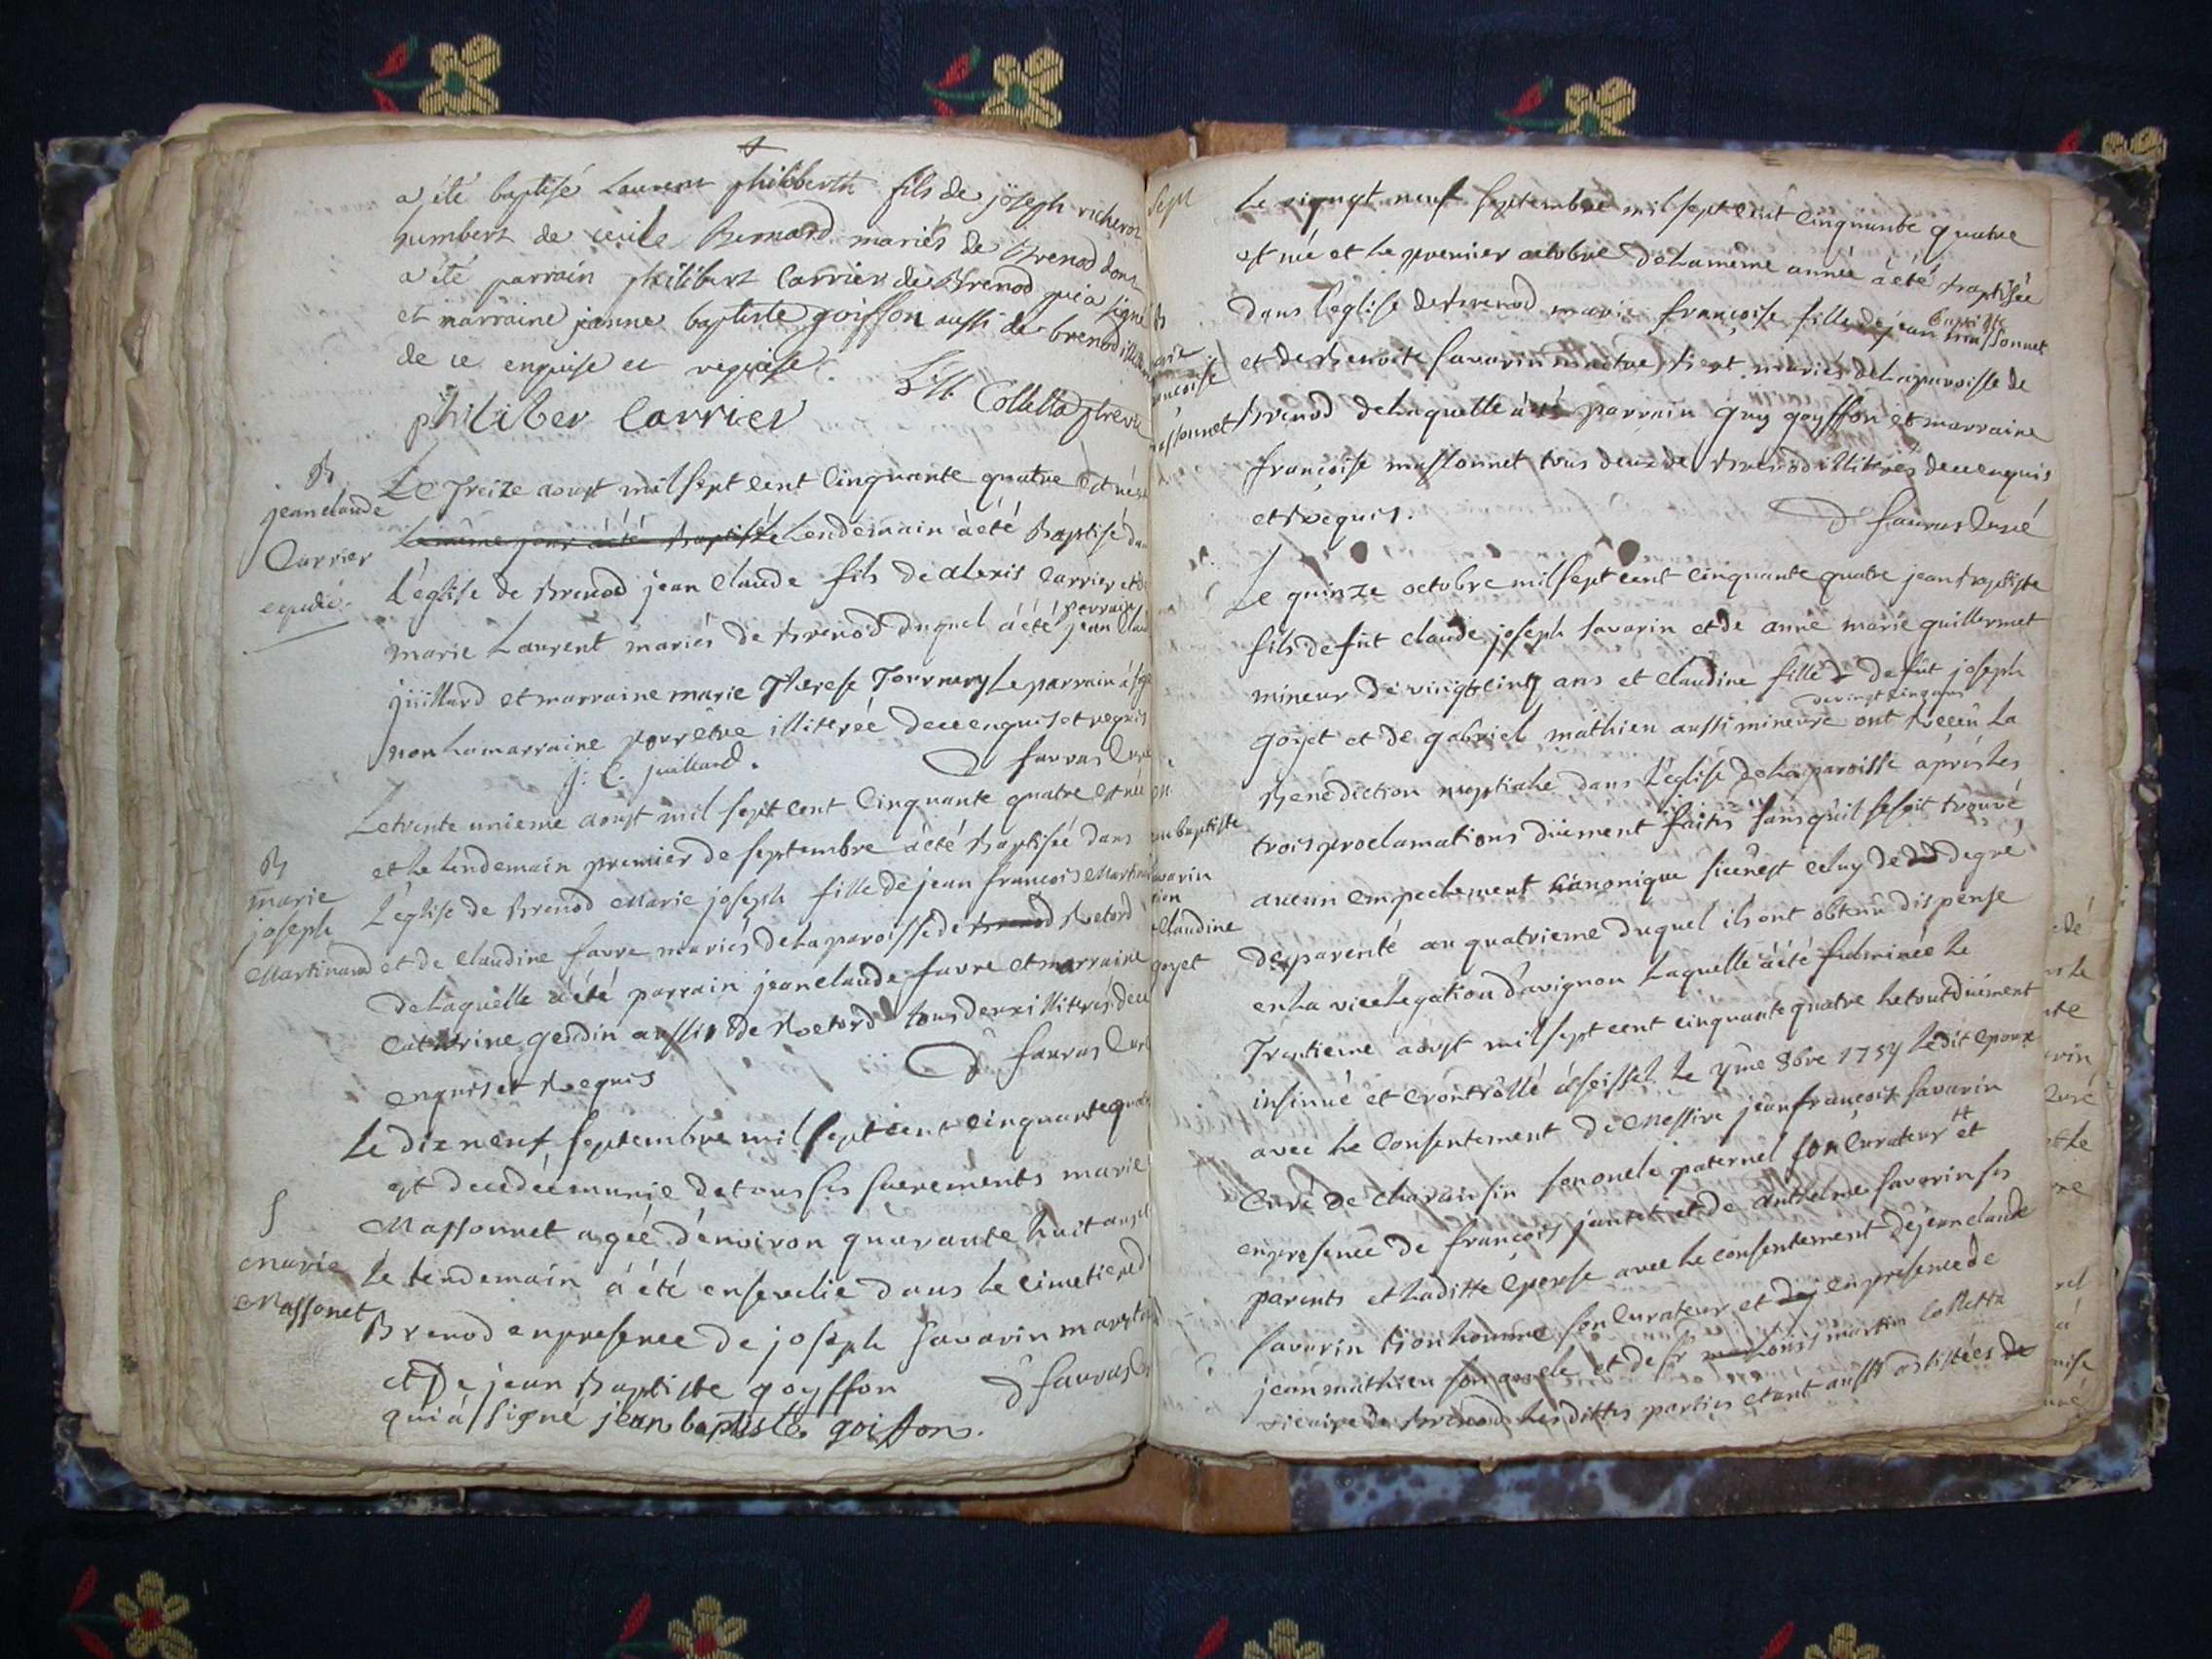 a été baptisé Laurent philiberth fils de joseph richerot
humbert de cecile Bernard mariés de Brenod dont
a été parrain philibert Carrier de Brenod qui a signé
et marraine jeanne baptiste goiffon aussi de brenod
de ce enquise et requise.
philiber Carrier
Colletta
B
jean claude
Carrier
expedié
Le Treize aoust mil sept cent Cinquante quatre est né
Le même jour a été Baptisé Lendemain à été Baptisé
L'église de Brenod jean Claude fils de alexis Carrier et
parrain
marie Laurent mariés de Brenod duquel à été jean
juillard et marraine marie Therese Tournery Le parrain à
non La marraine pour être illiterée de ce enquis et requis
J. C. juillard.
D favras Curé
Le trente unieme aoust mil sept cent Cinquante quatre est née
B
marie
joseph
Martinand
et Le Lendemain premier de septembre à été Baptisée dans
L'église de Brenod Marie joseph fille de jean francois
et de Claudine favre mariés de La paroisse de Brenod Retord
de Laquelle à été parrain jean claude favre et marraine
Catherine gendin aussi de Retord tous deux illiterés de ce
enquis et Requis
D favras Curé
Le dix neuf septembre mil sept cent cinquante
est decedée munie de tous ses sacrements marie
S
marie
Massonet
Massonnet agée d'environ quarante huit ans et
le lendemain à été ensevelie dans le cimetiere
Brenod en presence de joseph Savarin
et De jean Baptiste goyffon
D favras
qui a signé jean baptiste goiffon.
sept
Le vingt neuf septembre mil sept cent Cinquante quatre
est née et le premier octobre de La même année à été baptisée
baptiste
dans l'eglise de Brenod marie françoise fille de jean massonnet
et de Benoite Savarin mariés de La paroisse de
Brenod de Laquelle à été parrain guy goyffon et marraine
françoise massonnet tous deux de Brenod illiterés de ce enquis
et Requis.
D favras Curé
Le quinze octobre mil sept cent cinquante quatre jean Baptiste
fils de fût claude joseph Savarin et de anne marie guillermet
mineur de vingt cinq ans et Claudine fille de fût joseph
de vingt cinq ans
goyet et de gabriel mathieu aussi mineure ont Reçeu La
Benediction nuptiale dans L'eglise de La paroisse après Les
trois proclamations düement faites sans qu'il se soit trouvé
aucun empechement canonique si ce n'est celuy de degré
de parenté au quatrieme duquel ils ont obtenû dispense
en La vice Legation d'avignon Laquelle à été fulminée Le
Trentieme aoust mil sept cent cinquante quatre le tout düement
insinué et Controllé à seissel Le 8bre 1754 Ledit epoux
avec Le Consentement de Messire jean françois Savarin
Curé de son oncle paternel son Curateur et
en presence de françois jantet et de Anthelme Savarin ses
parents et Laditte epouse avec Le consentement de jean claude
Savarin Bonhomme son Curateur et en presence de
jean mathieu son oncle et de martin Colletta
vicaire de Brenod Lesdittes parties etant aussi assistées de